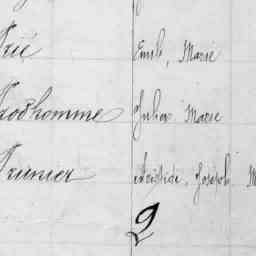 Emile, Marie
Prodhomme Julien Marie
Prunier Aristide, Joseph M
Q